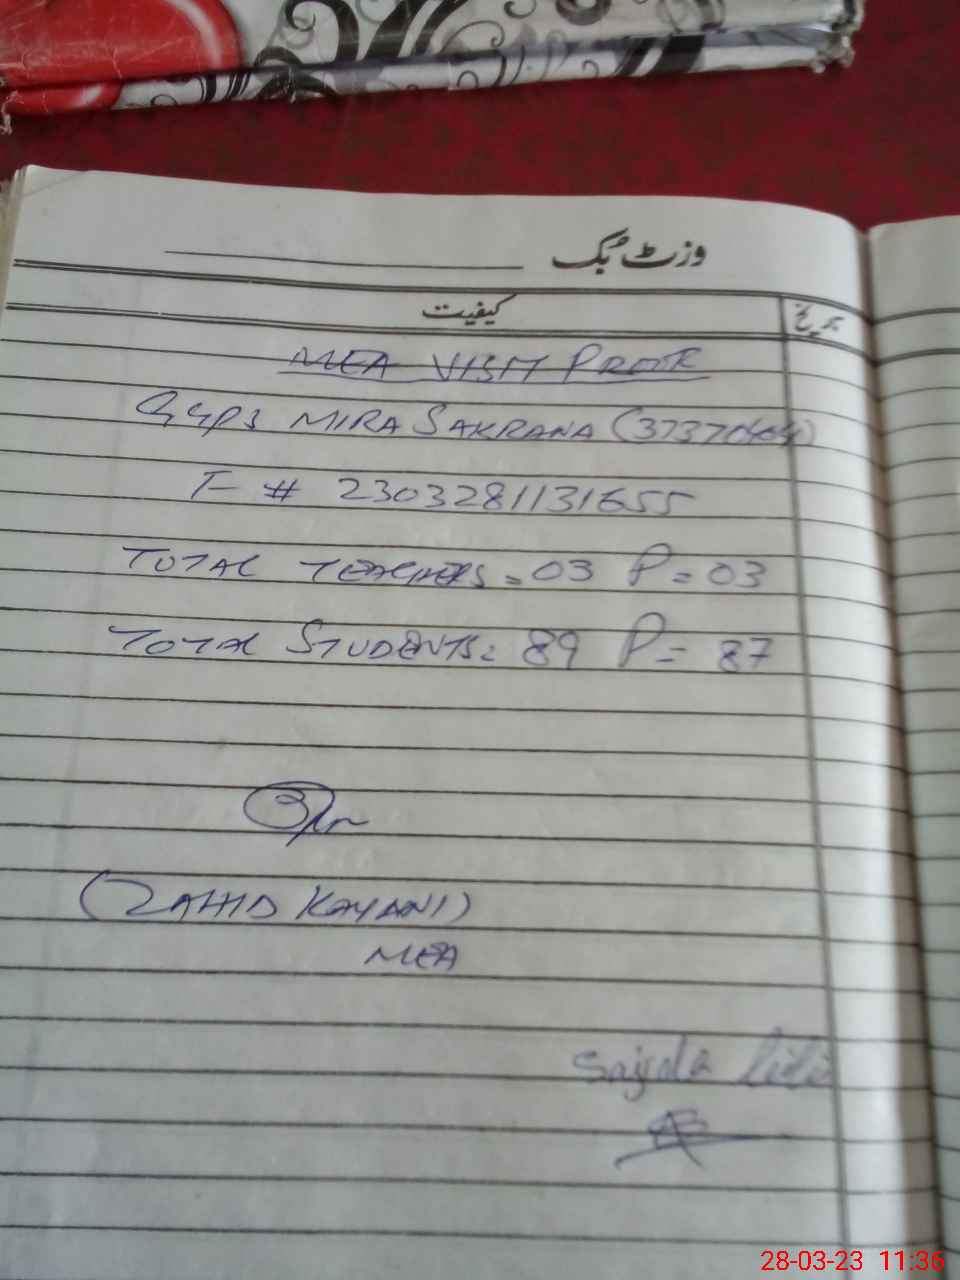 وزٹ بُک
کیفیت
تاریخ
MEA VISIT PROOF
GGPS MIRA SAKRANA
T- # 2303281131655
TOTAL TEACHERS = 03 P = 03
TOTAL STUDENTS = 89 P = 87
(ZAHID KAYANI)
MEA
Sajida bibi
28-03-23 11:36